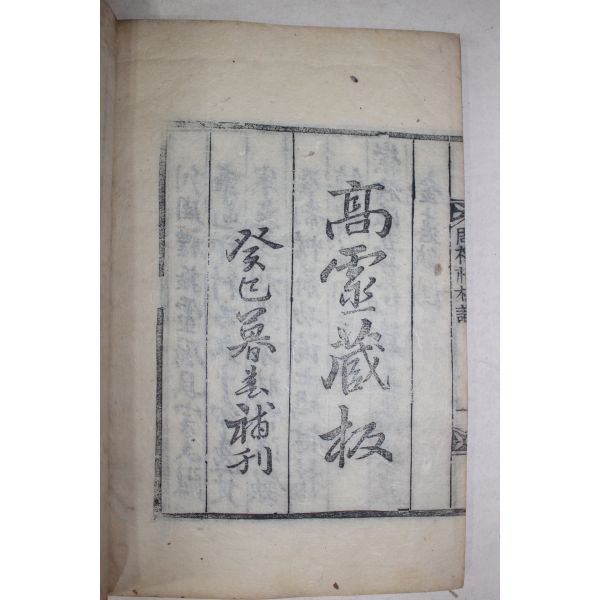 高靈蔵板
癸巳暮春補刊